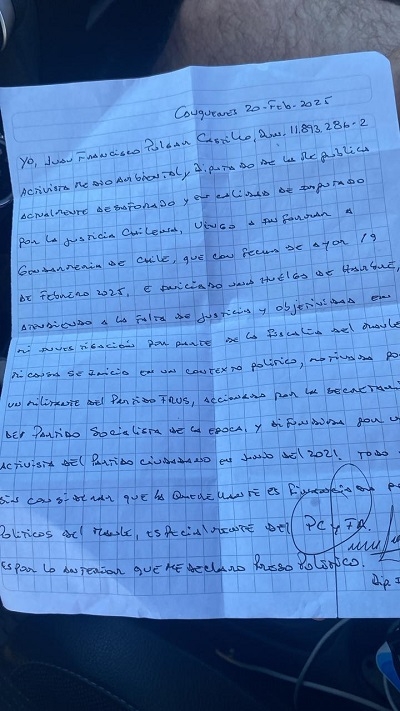 Cauquenes 20-Feb-2025
Yo, Juan Francisco Pulgar Castillo, Run. 11.893.286-2
Activista Medio Ambiental y Diputado de la Republica
actualmente desaforado y en calidad de imputado
por la justicia Chilena, vengo a informar a
Gendarmeria de Chile, que con fecha de ayer 19
de Febrero 2025, e iniciado una huelga de Hambre,
atendiendo a la falta de justicia y objetividad en
mi investigación por parte de la Fiscalia del Maule
mi causa se inicio en un contexto político, motivada po
un militante del Partido FRVS, accionado por la secretari
del Partido Socialista de la epoca, y difundida por un
activista del Partido Ciudadano en Junio del 2021. Todo
sin considerar que la querellante es financiada
Politicos del Maule, especialmente del PC y FA.
es por lo anterior que me declaro Preso Político.
Dip.